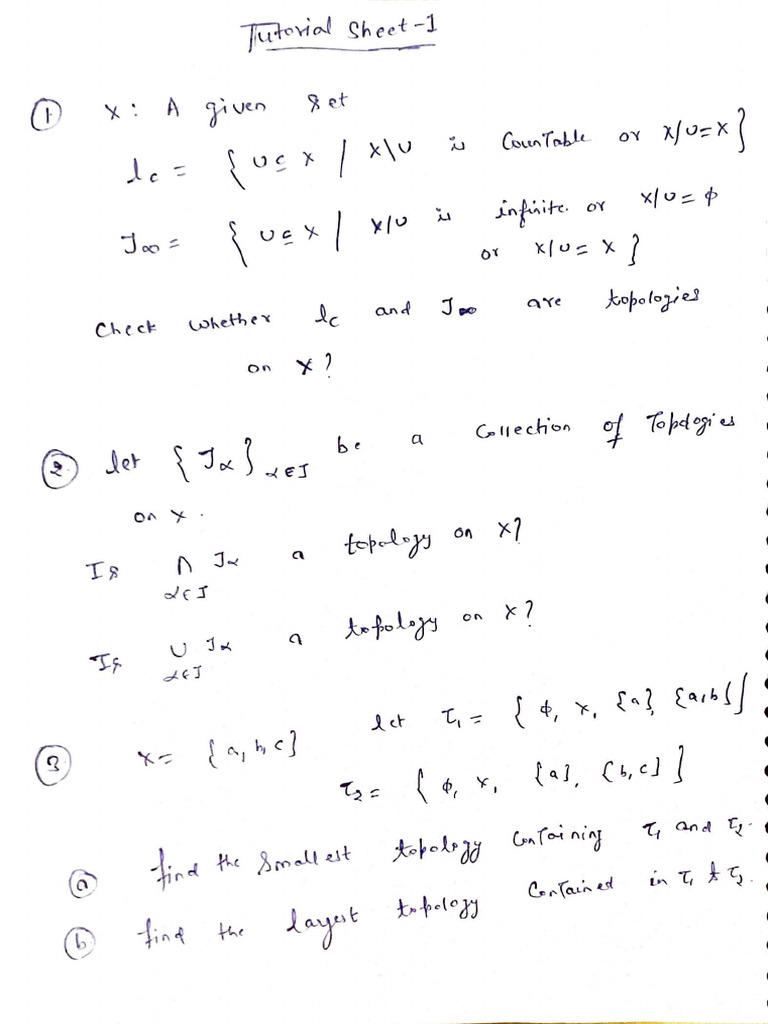 Tutorial Sheet-1
① X: A given set
ℐc = { U ⊆ X / X\U is Countable or X/U=X }
J∞ = { U ⊆ X / X/U is infinite or X/U = ϕ
or X/U = X }
Check whether ℐc and J∞ are topologies
on X?
② let { Jα }α∈J be a Collection of Topologies
on X.
Is ∩ Jα a topology on X?
α∈J
Is ∪ Jα a topology on X?
α∈J
③ X = {a, b, c} let τ1 = { ϕ, X, {a}, {a,b} }
τ2 = { ϕ, X, {a}, {b,c} }
ⓐ find the smallest topology Containing τ1 and τ2.
ⓑ find the largest topology Contained in τ1 & τ2.